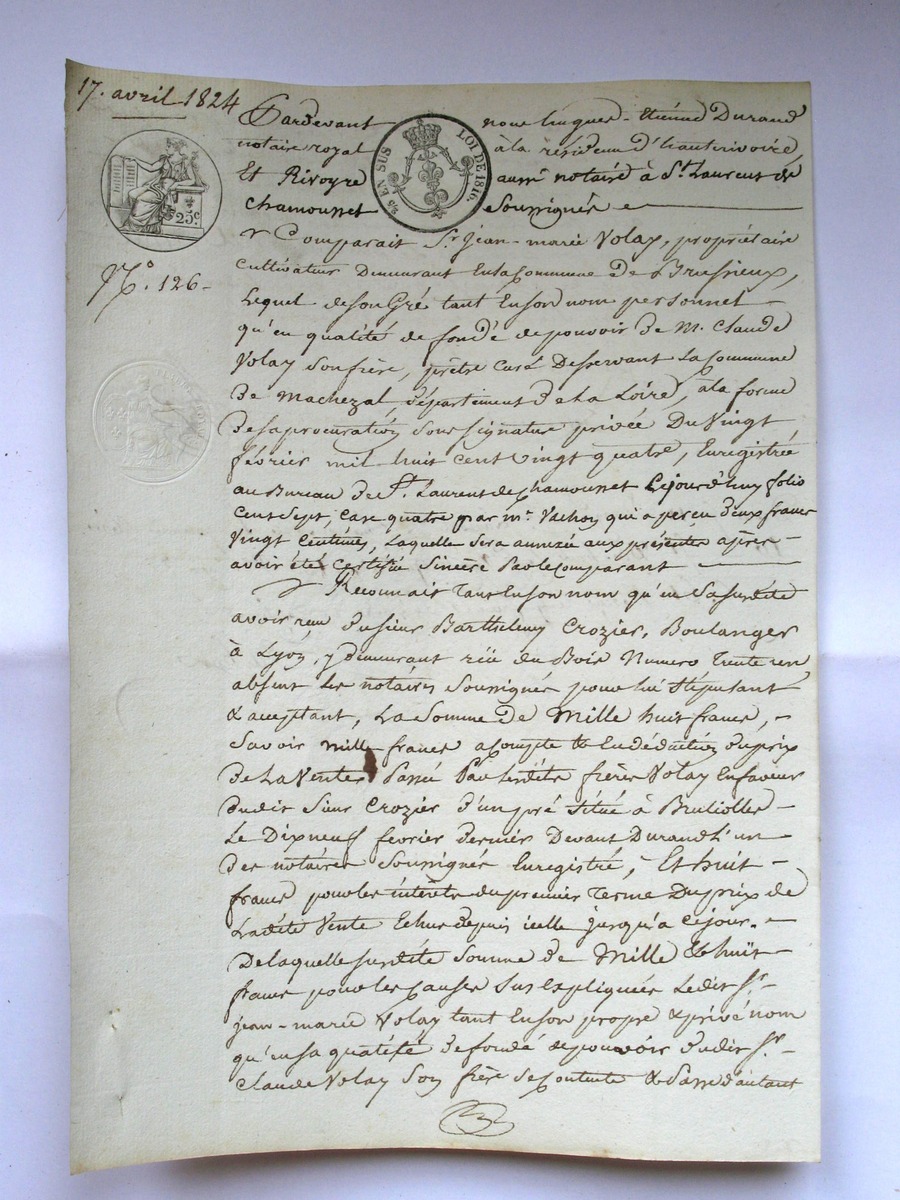 17. avril 1824
25c
N.o 126 -
25 EN SUS LOI DE 1816.
Pardevant nous hugues-Etiénne Durand
notaire royal à la résidence d'hauterivoire,
Et Rivoyre aussi notaire à St. Laurent de
Chamousset Soussignés
Comparait Sr. Jean-marie Volay, propriétaire
cultivateur demeurant En la Commune De Brussieux,
Lequel de son Gré tant En son nom personnel
qu'en qualité de fondé de pouvoir de M. Claude
Volay Son frère, prêtre Curé Desservant La Commune
de Machezal, département de La Loire, à la forme
de sa procuration Sous Signature privée Du Vingt
février mil huit Cent Vingt quatre, Enregistrée
au Bureau de St. Laurent de Chamousset Cejourd'huy folio
Cent Sept, Case quatre par Mr. Vachon qui a perçu deux francs
Vingt Centimes, Laquelle Sera annexée aux présentes après
avoir été Certifiée Sincère Par le Comparant
Reconnait Tant En son nom qu'en Sa susdite
avoir reçu du sieur Barthélemy Crozier, Boulanger
à Lyon, y demeurant rüe du Bois Numero Trente un
absent les notaires Soussignés pour lui Stipulant
& acceptant, La Somme De Mille huit francs,
Savoir Mille francs acompte & En déduction du prix
de La Vente Passée Par lesdits frères Volay En faveur
dudit Sieur Crozier d'un pré Situé à Brullioles
Le Dix neuf février dernier Devant Durand L'un
des notaires Soussignés Enregistré, Et huit
francs pour les intérêts du premier Terme Du prix de
Ladite Vente Echus depuis icelle jusqu'à Cejour.
De laquelle Susdite Somme de Mille & huit
francs pour les Causes Sus Expliquées Ledit Sr.
Jean-marie Volay tant En son propre & privé nom
qu'en sa qualité de fondé de pouvoir dudit Sr.
Claude Volay Son frère Se Contente & d'autant